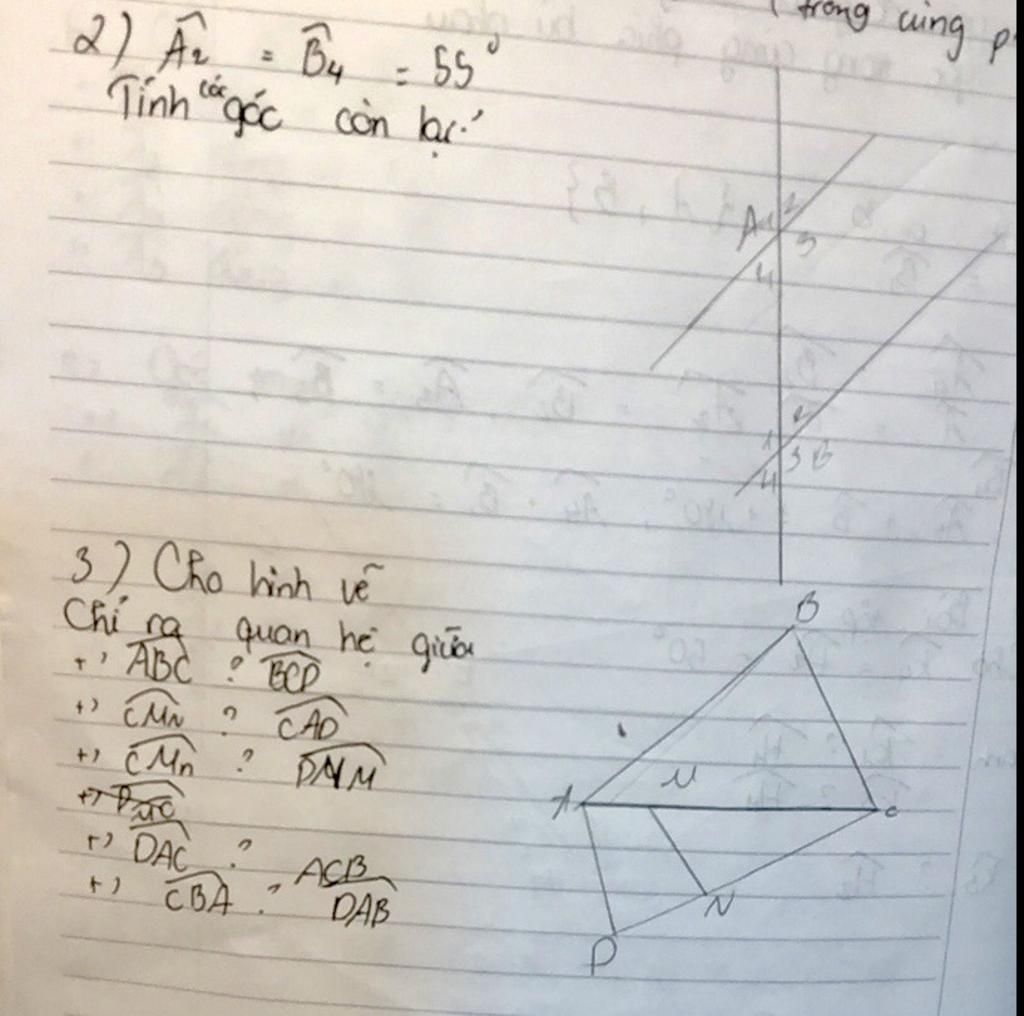 (trong cùng p
2) Â₂ = B̂₄ = 55⁰
Tính các góc còn lại
A 1 2
3
4
1 2
3 B
4
3) Cho hình vẽ
Chỉ ra quan hệ giữa
+) ABC ? BCD
+) CMN ? CAD
+) CMN ? DNM
+) DAC ? ACB
+) CBA ? DAB
B
A M C
N
D